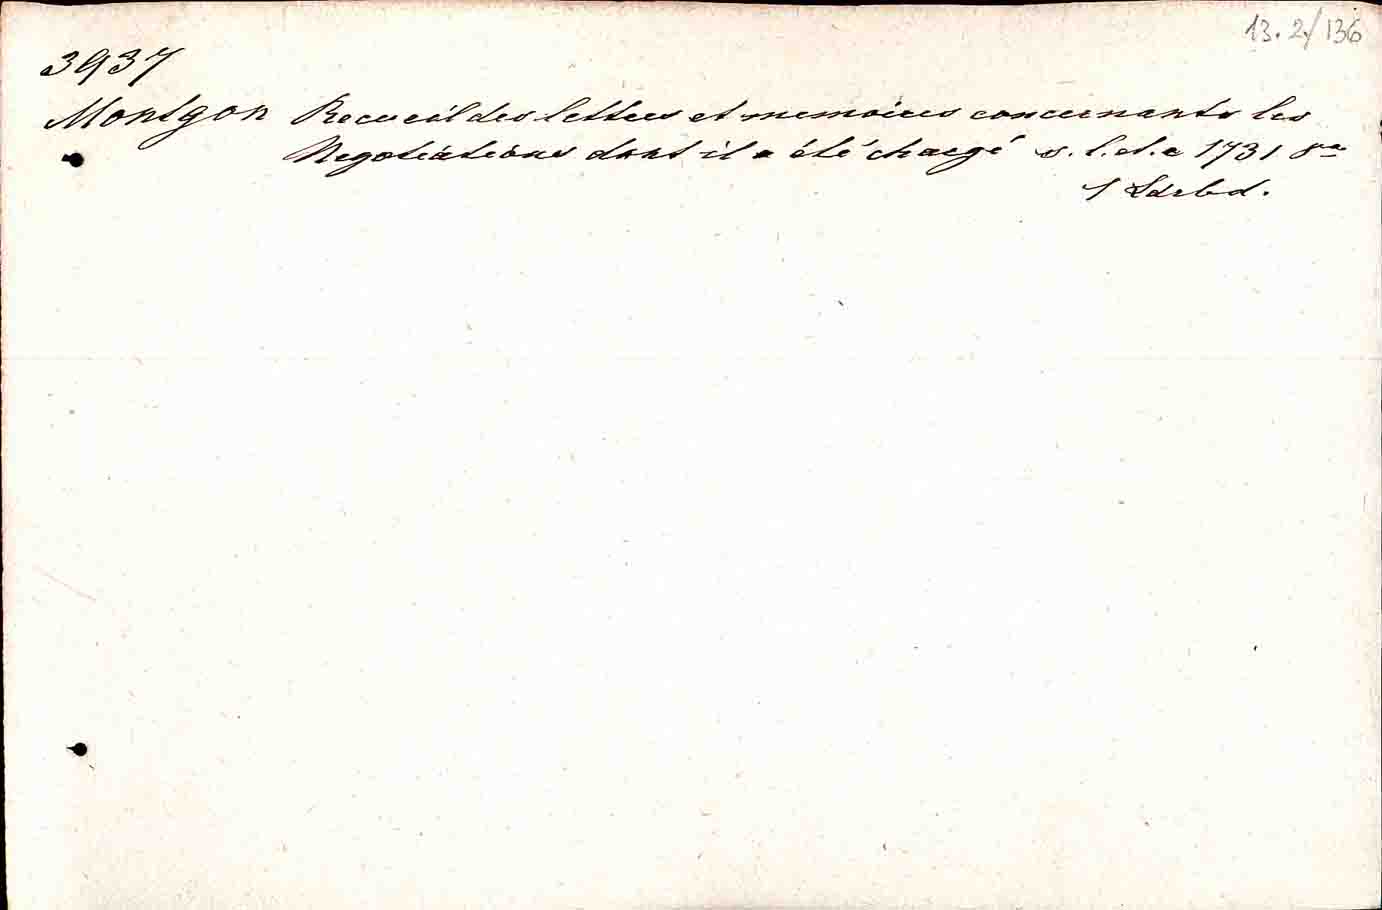 13.2/136
3937
Montgon Recueil des lettres et memoires concernants les
Negotiations dont il a été chargé s. l. et. a 1731 8vo
1 Ldrbd.